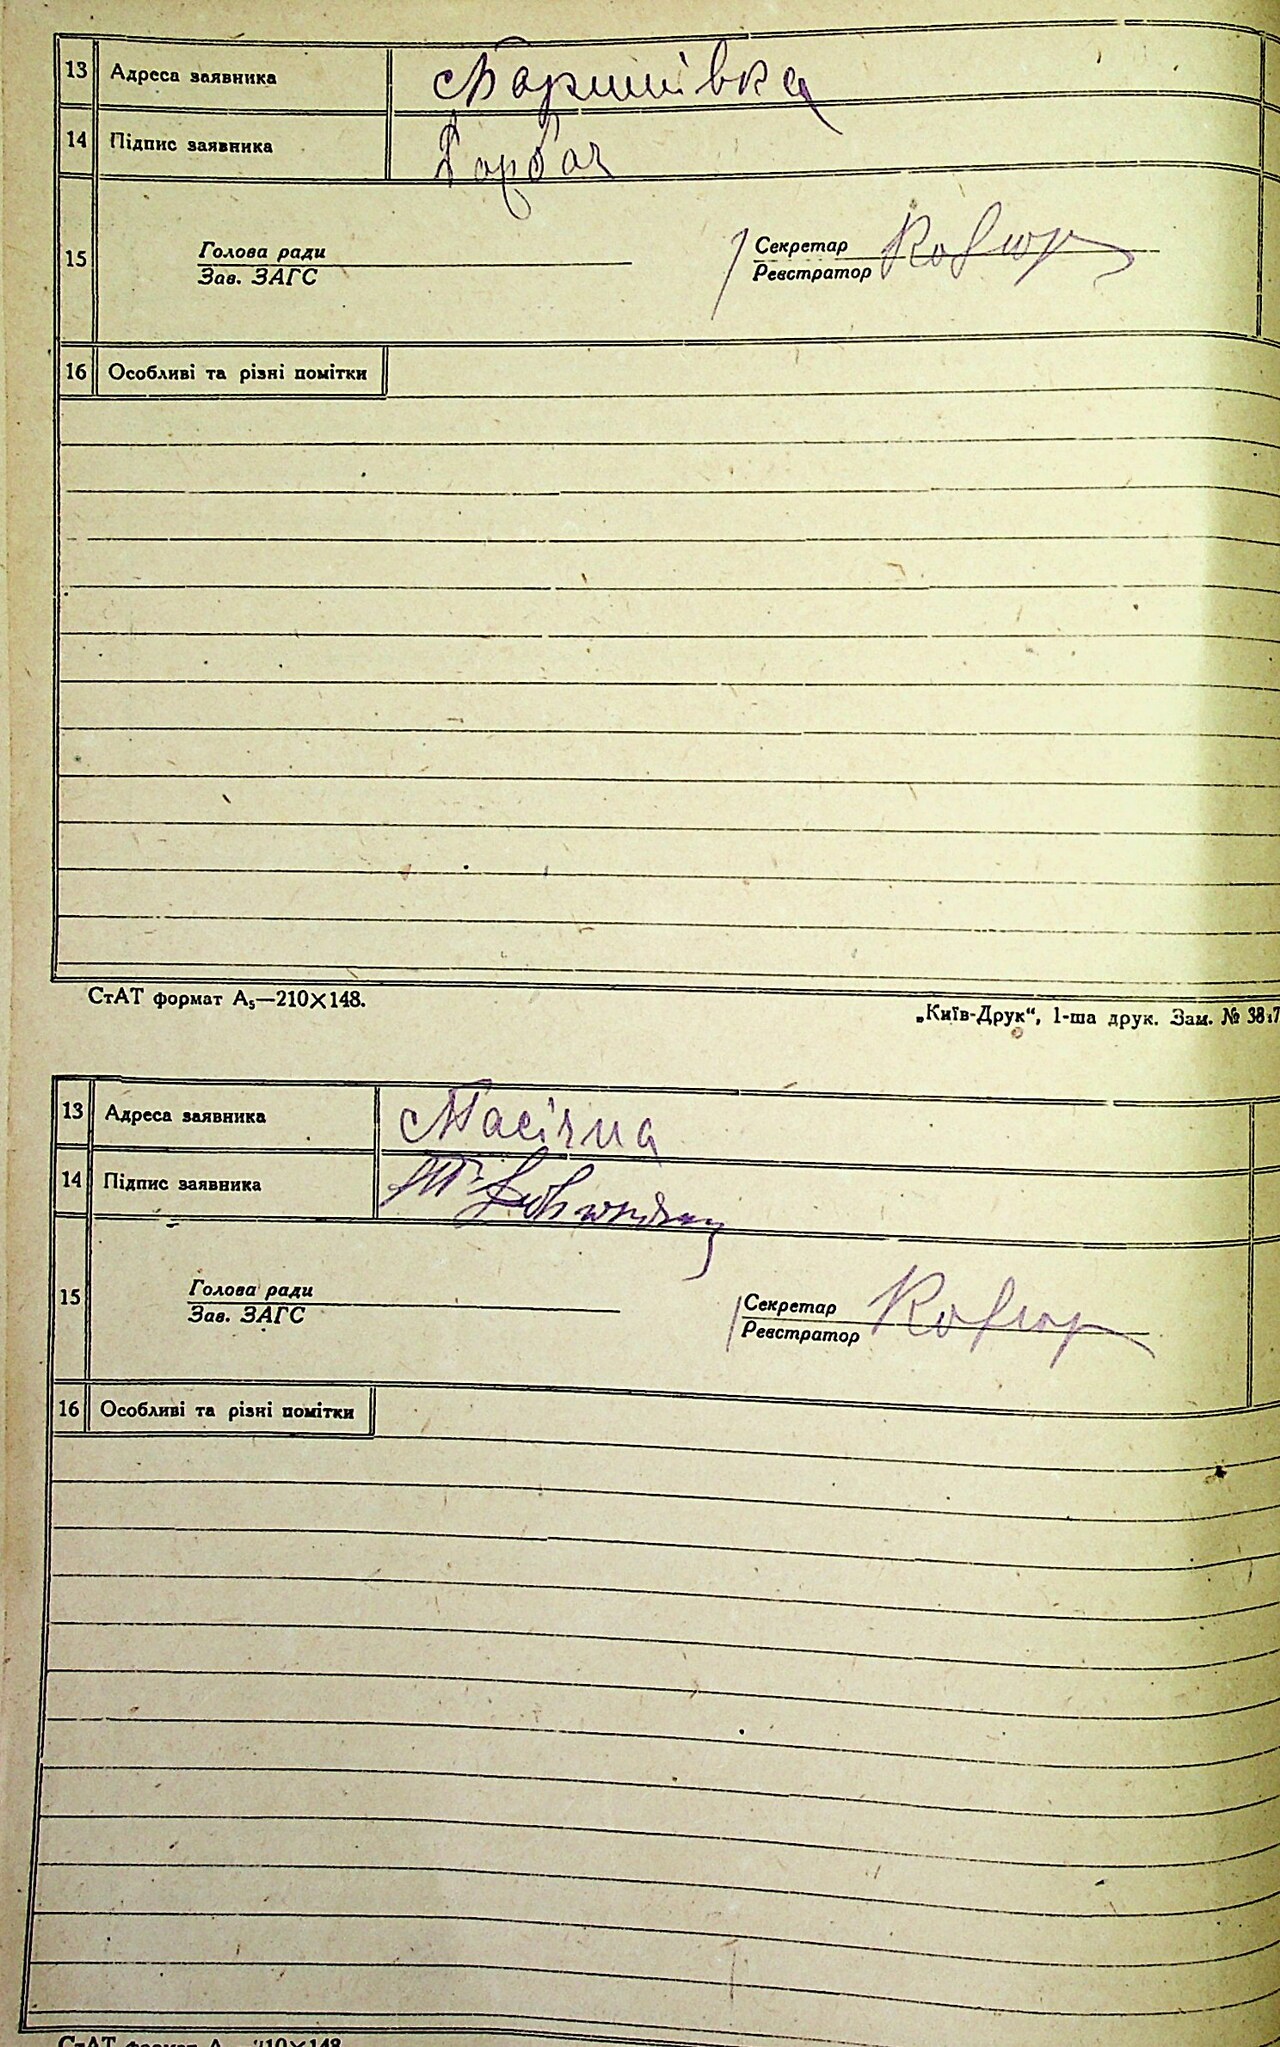 13 Адреса заявника
14 Підпис заявника Горбач
15 Голова ради Секретар
Зав. ЗАГС Реєстратор
16 Особливі та різні помітки
СтАТ формат А₅—210×148.
„Київ-Друк“, 1-ша друк. Зам. №
13 Адреса заявника Пасічна
14 Підпис заявника
15 Голова ради Секретар
Зав. ЗАГС Реєстратор
16 Особливі та різні помітки
СтАТ формат А 210×148